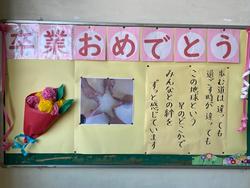 卒業おめでとう
歩む道は違っても
過ごす時が違っても
この地球という
星のどこかで
みんなとの絆を
ずっと感じています